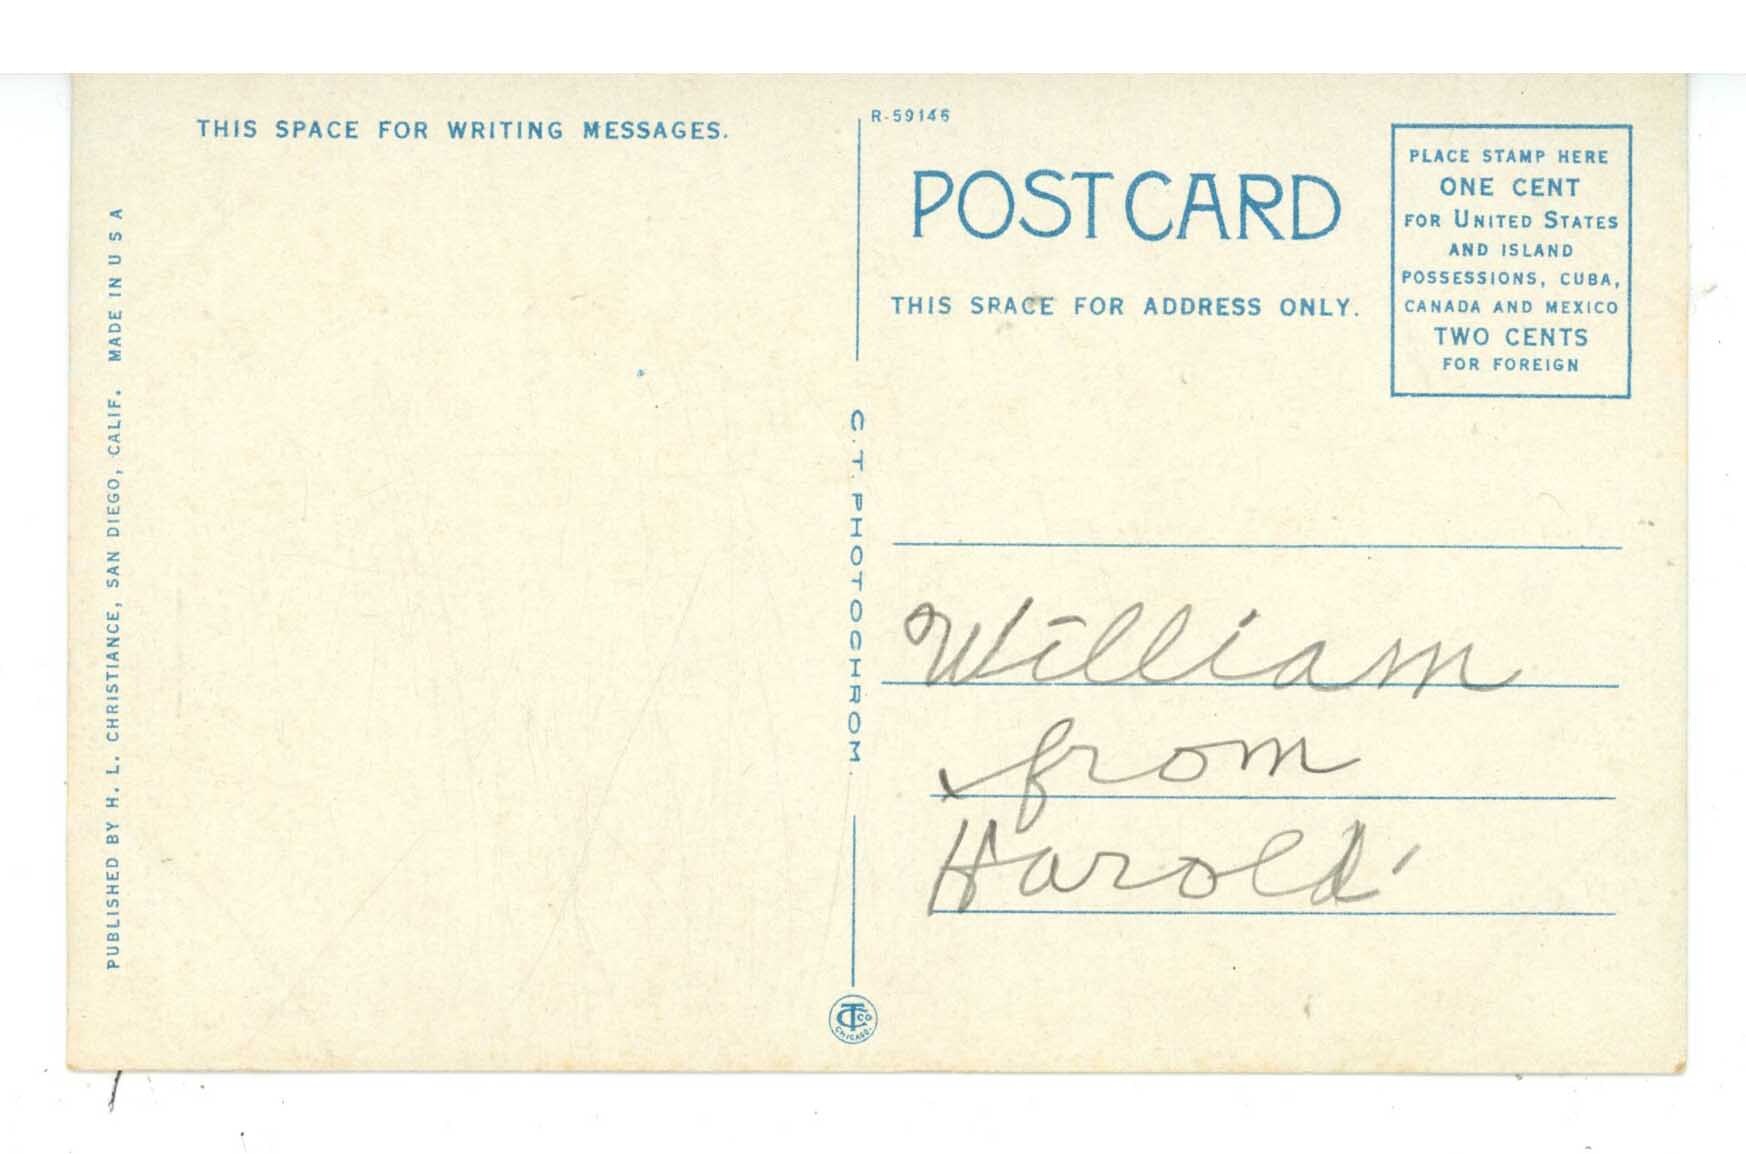 THIS SPACE FOR WRITING MESSAGES.
PUBLISHED BY H. L. CHRISTIANCE, SAN DIEGO, CALIF. MADE IN U S A
C. T. PHOTOCHROM
CTCO
CHICAGO.
R-59146
POST CARD
THIS SPACE FOR ADDRESS ONLY.
PLACE STAMP HERE
ONE CENT
FOR UNITED STATES
AND ISLAND
POSSESSIONS, CUBA,
CANADA AND MEXICO
TWO CENTS
FOR FOREIGN
William
from
Harold